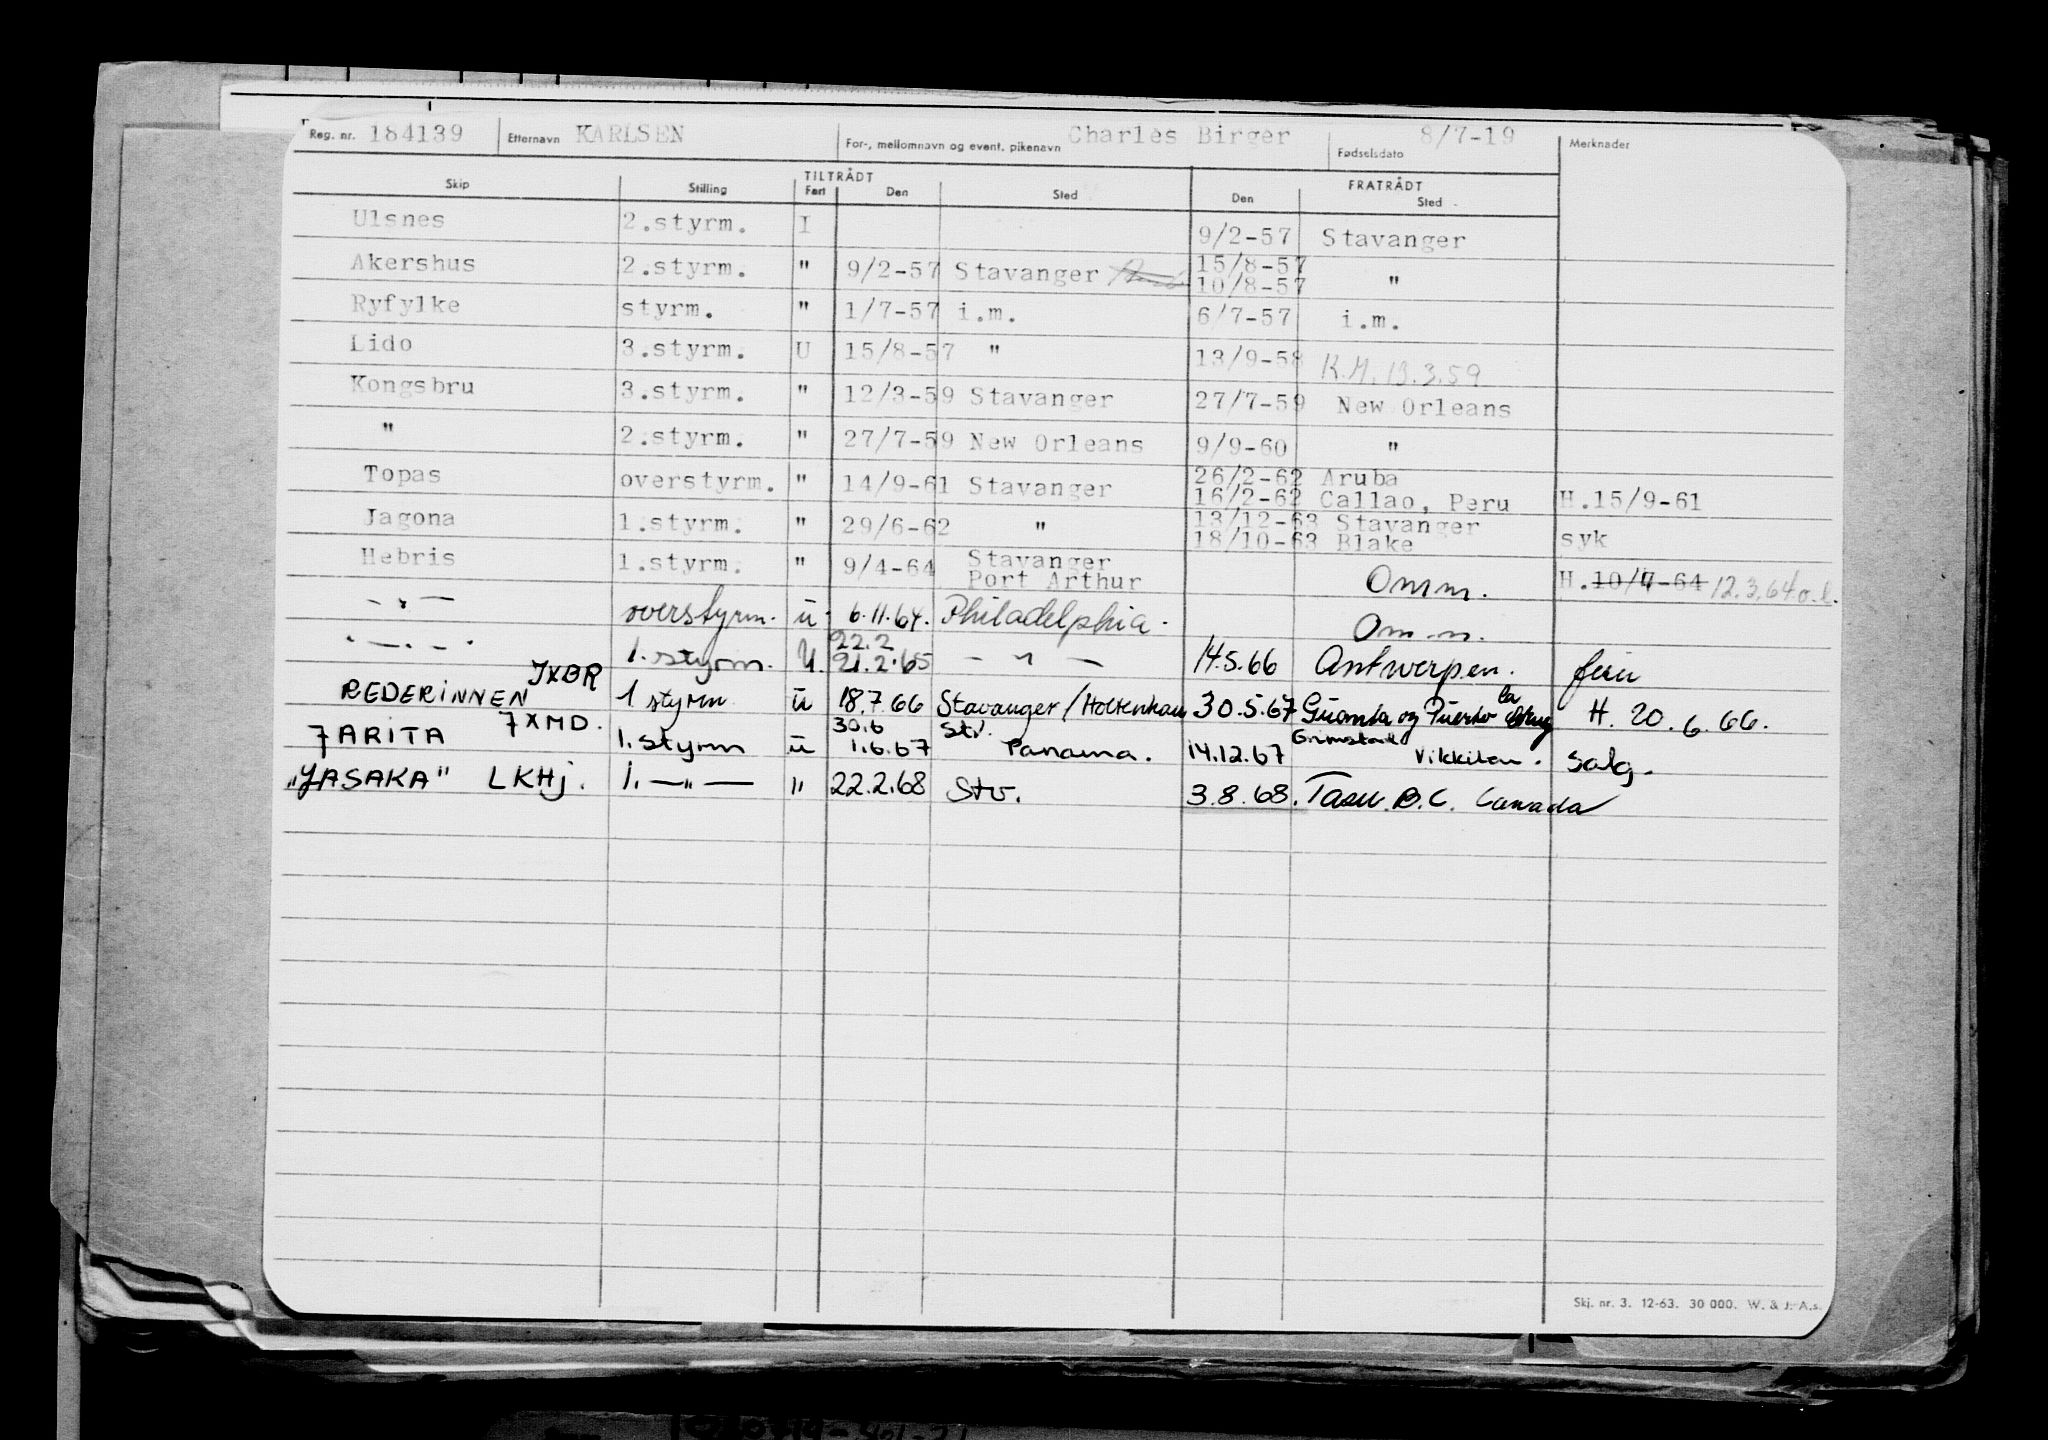 Reg. nr. 184139 Etternavn KARLSEN For-, mellomnavn og event. pikenavn Charles Birger Fødselsdato 8/7-19 Merknader
TILTRÅDT FRATRÅDT
Skip Stilling Fart Den Sted Den Sted
Ulsnes 2.styrm. I 9/2-57 Stavanger
Akershus 2.styrm. " 9/2-57 Stavanger 15/8-57
10/8-57 "
Ryfylke styrm. " 1/7-57 i.m. 6/7-57 i.m.
Lido 3.styrm. U 15/8-57 " 13/9-58 R.M. 13.3.59
Kongsbru 3.styrm. " 12/3-59 Stavanger 27/7-59 New Orleans
" 2.styrm. " 27/7-59 New Orleans 9/9-60 "
Topas overstyrm. " 14/9-61 Stavanger 26/2-62 Aruba
16/2-62 Callao, Peru H.15/9-61
Jagona 1.styrm. " 29/6-62 " 13/12-63 Stavanger
18/10-63 Blake syk
Hebris 1.styrm. " 9/4-64 Stavanger
Port Arthur Omm. H.10/4-64 12.3.64 o.l.
- " - overstyrm. u 6.11.64. Philadelphia. Omm.
- " - 1. styrm. U. 22.2
21.2.65 - " - 14.5.66 Antwerpen. ferie
REDERINNEN JXBR 1 styrm u 18.7.66 Stavanger/Holtenhau 30.5.67 Guanta og Puerto la H. 20.6.66.
JARITA JXMD. 1. styrm u 30.6 Stv.
1.6.67 Panama. 14.12.67 Grimstad Vikkilen. salg.
"JASAKA" LKHj. 1. - " - " 22.2.68 Stv. 3.8.68. Tasu. B.C. Canada
Skj. nr. 3. 12-63. 30 000. W. & J. A.s.